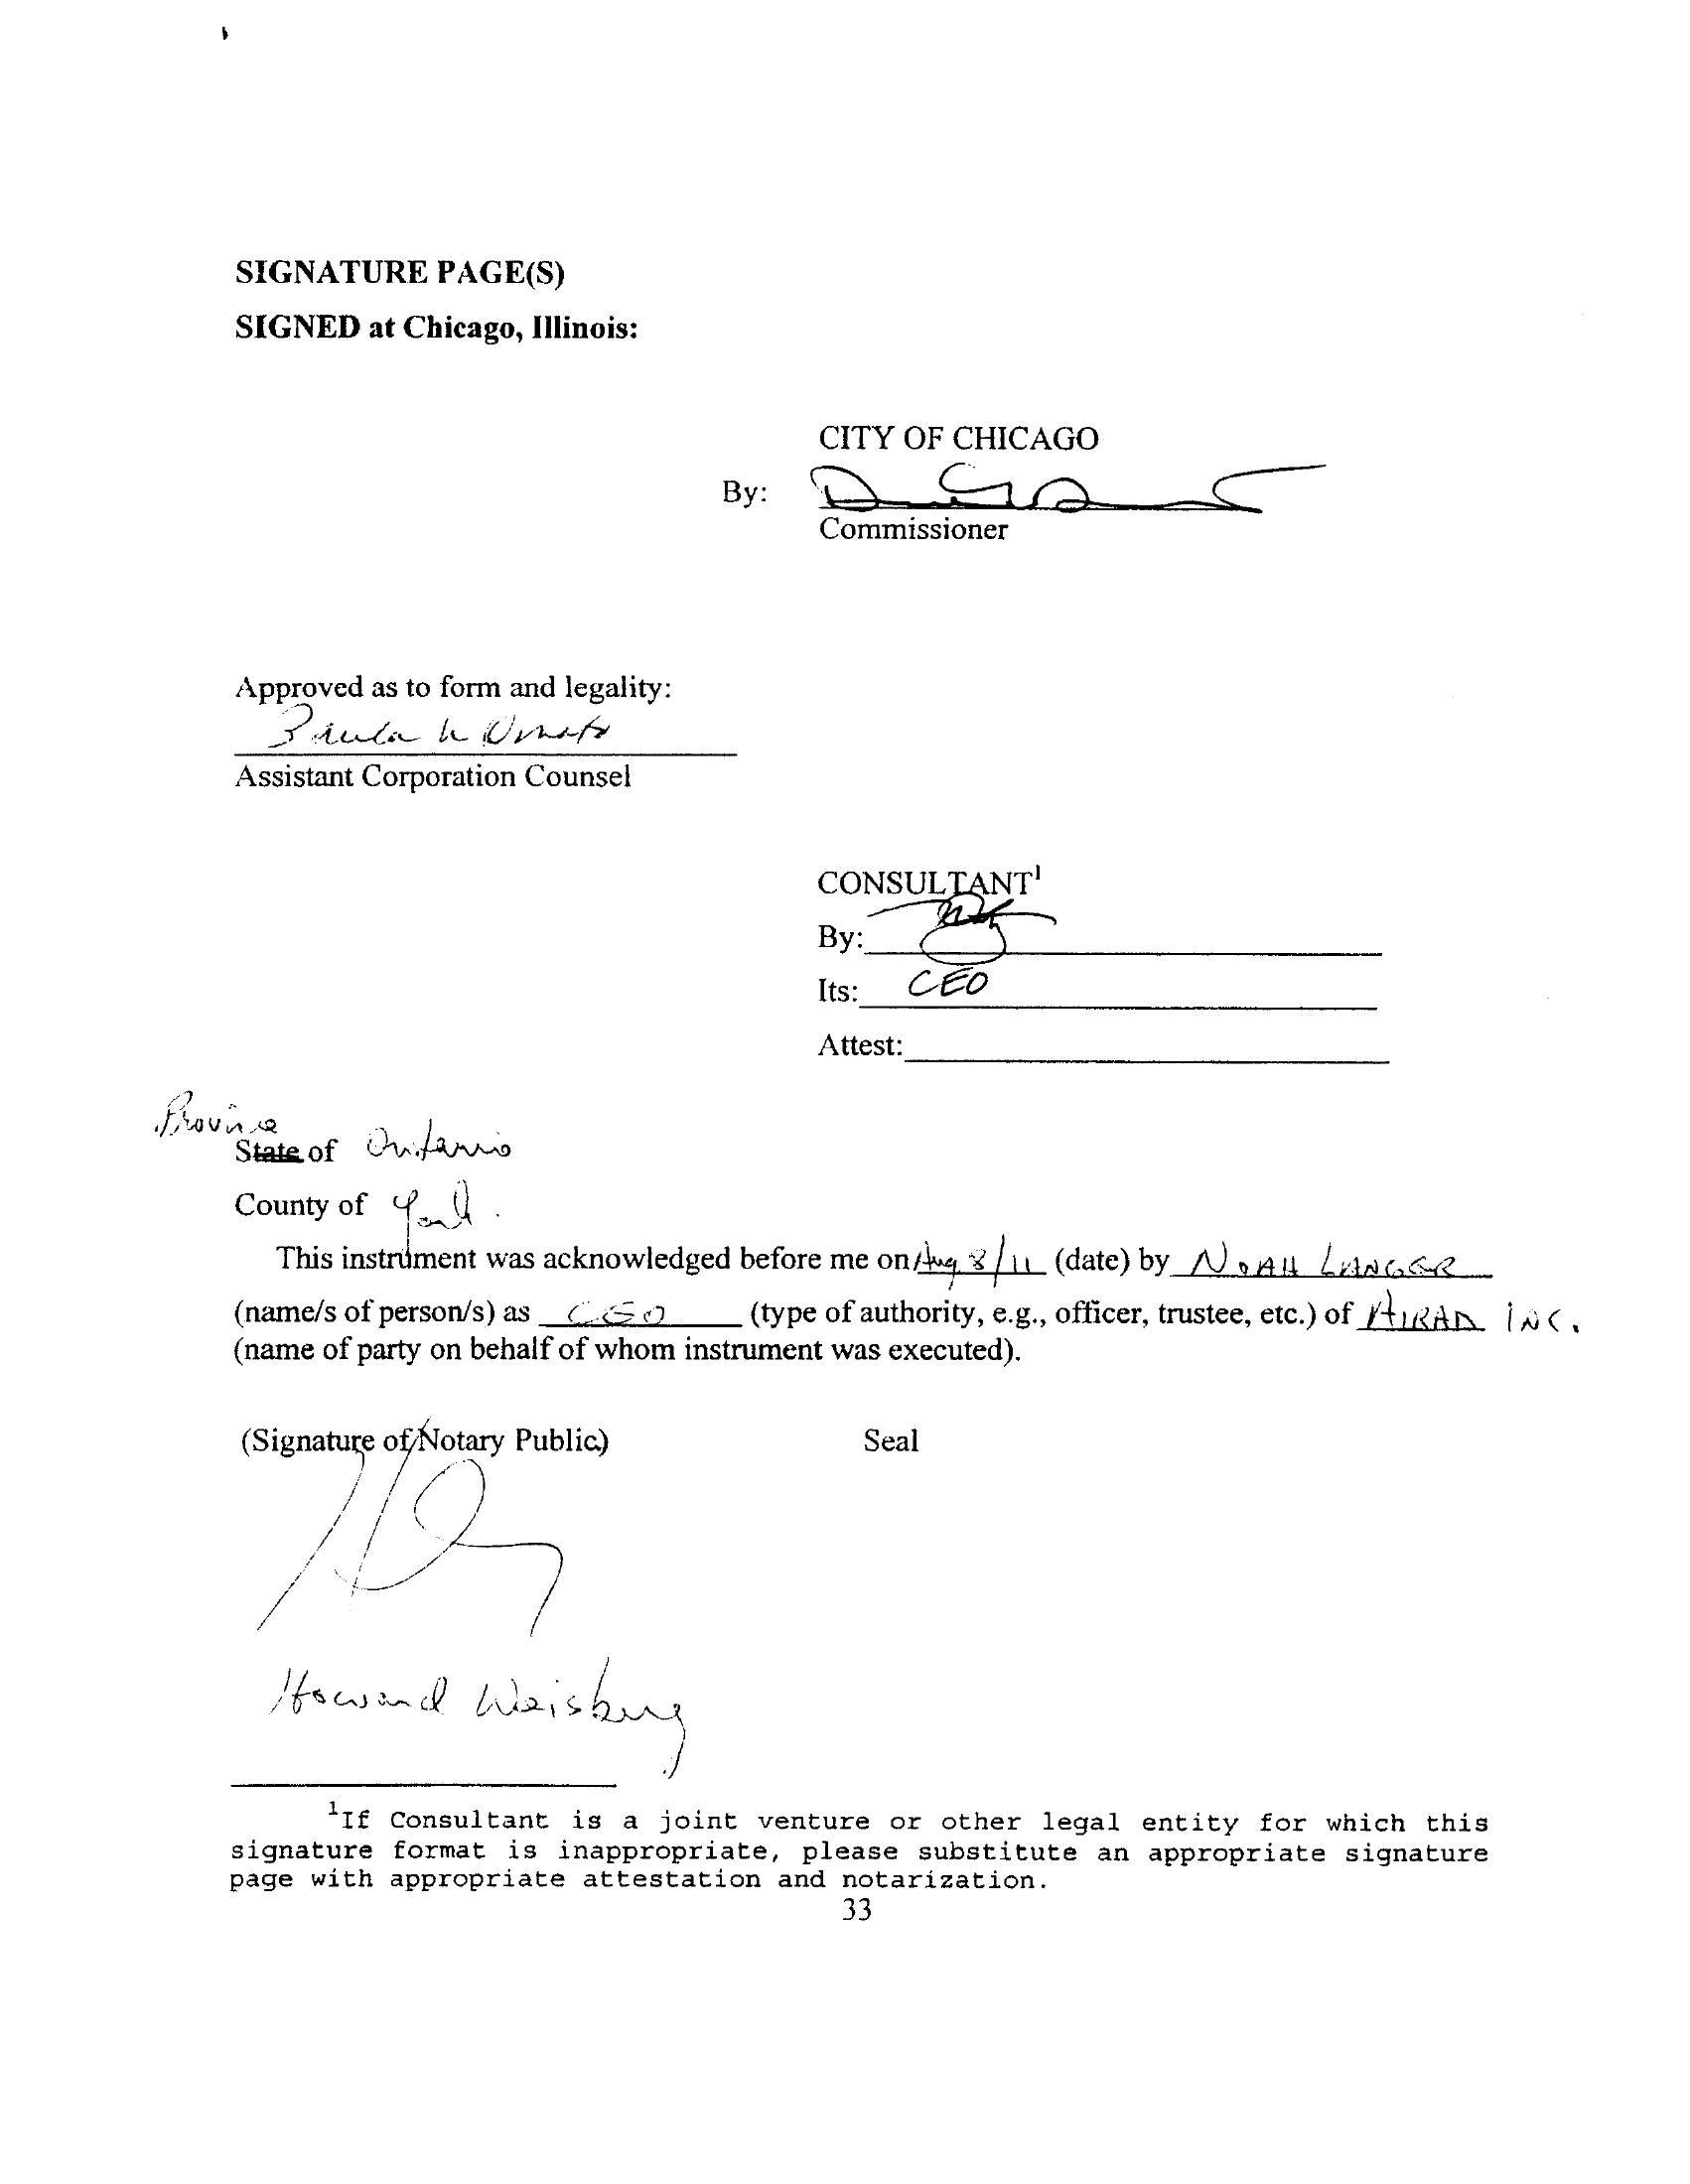 SIGNATURE PAGE(S)
SIGNED at Chicago, Illinois:
CITY OF CHICAGO
By:
Commissioner
Approved as to form and legality:
Assistant Corporation Counsel
CONSULTANT¹
By:
Its: CEO
Attest:
Province
State of Ontario
County of York.
This instrument was acknowledged before me on Aug 8/11 (date) by NOAH LANGER
(name/s of person/s) as CEO (type of authority, e.g., officer, trustee, etc.) of INC.
(name of party on behalf of whom instrument was executed).
(Signature of Notary Public) Seal
Howard Weisberg
¹If Consultant is a joint venture or other legal entity for which this
signature format is inappropriate, please substitute an appropriate signature
page with appropriate attestation and notarization.
33